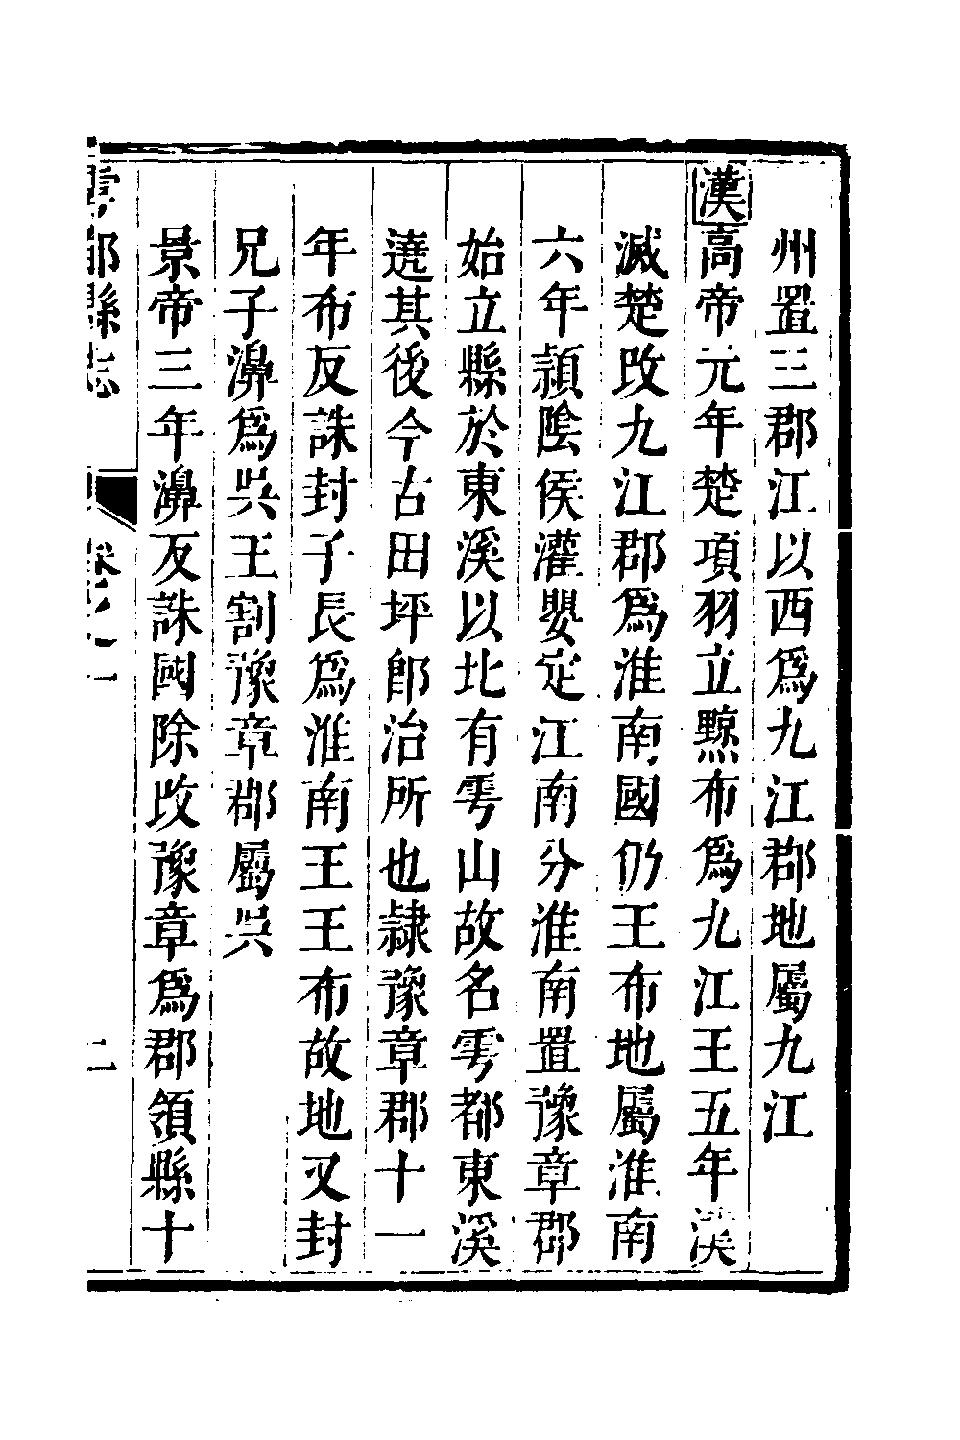 州置三郡江以西爲九江郡地屬九江
漢高帝元年楚項羽立黥布爲九江王五年漢
滅楚改九江郡爲淮南國仍王布地屬淮南
六年潁陰侯灌嬰定江南分淮南置豫章郡
始立縣於東溪以北有雩山故名雩都東溪
遶其後今古田坪郎治所也隷豫章郡十一
年布反誅封子長爲淮南王王布故地又封
兄子濞爲吳王割豫章郡屬吳
景帝三年濞反誅國除改豫章爲郡領縣十
雩都縣志
卷之一
二